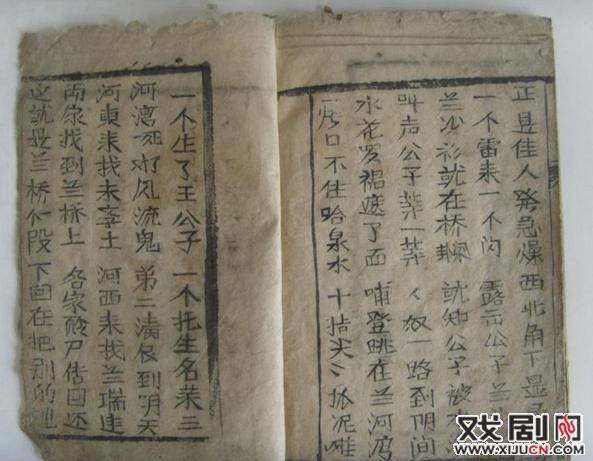 正是佳人発急燥 西北角下显
一个雷来一个闪 露出公子兰
兰沙衫就在桥 就知公子被水
叫声公子等一等 奴一路到阴间
水花罗裙遮了面 哺登跳在兰河湾
口不住哈泉水 十指尖〻抓泥
一个生了王公子 一个托生名英三
河湾死水风流鬼 弟二清辰到明天
河東来找李土 河西来找兰瑞连
两家找到兰桥上 各家殓尸传回还
这就是兰桥一段 下回在把别的
戏剧网
WWW.XIJUCN.COM